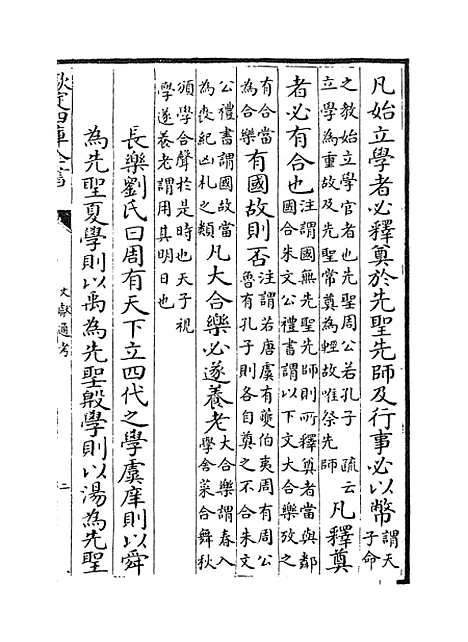 凡始立學者必釋奠於先聖先師及行事必以幣謂天子命
之教始立學官者也先聖周公若孔子 疏云
立學為重故及先聖常奠為輕故唯祭先師凡釋奠
者必有合也注謂國無先聖先師則所釋奠者當與鄰
國合朱文公禮書謂以下文大合樂攷之
有合當
為合樂有國故則否注謂若唐虞有夔伯夷周有周公
魯有孔子則各自奠之不合朱文
公禮書謂國故當
為喪紀凶札之類凡大合樂必遂養老大合樂謂春入
學舍菜合舞秋
頒學合聲於是時也天子視
學遂養老謂用其明日也
長樂劉氏曰周有天下立四代之學虞庠則以舜
為先聖夏學則以禹為先聖殷學則以湯為先聖
欽定四庫全書
文獻通考
二